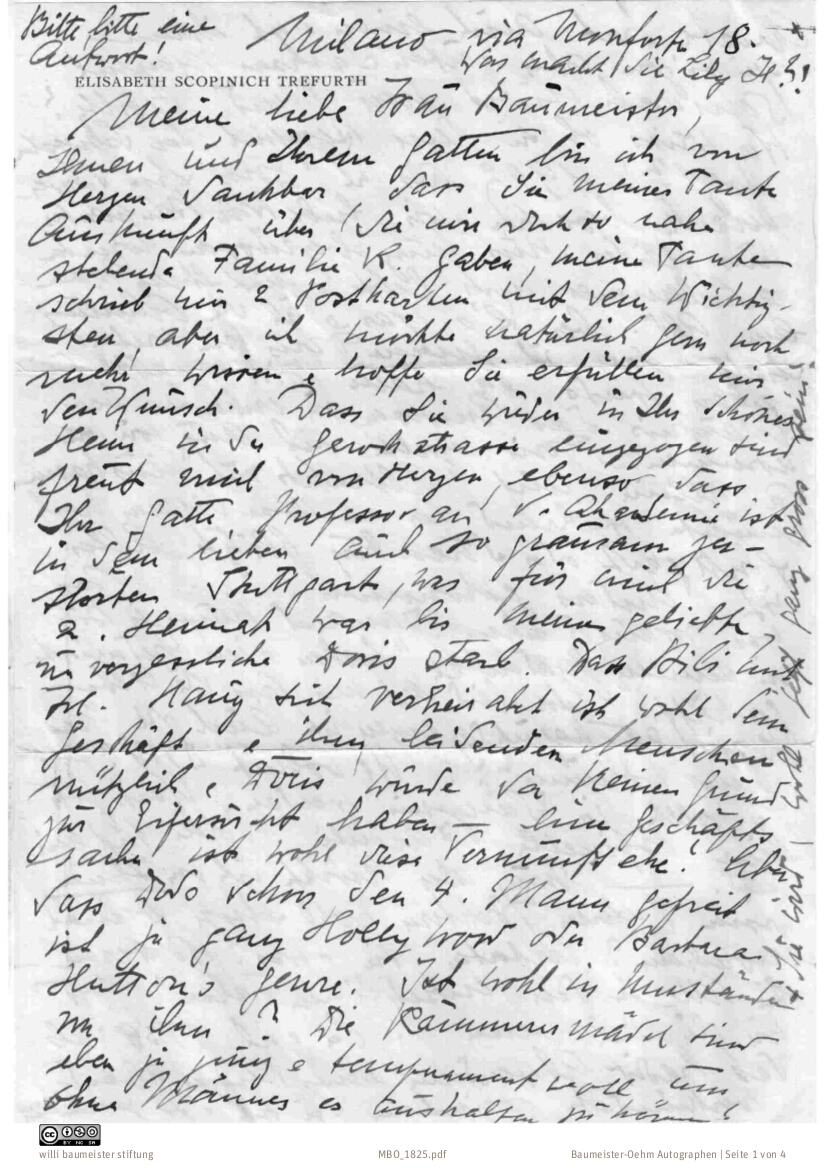 Bitte, bitte eine
Antwort!
Milano via Monforte 18.
Was macht die Lily H?!
ELISABETH SCOPINICH TREFURTH
Meine liebe Frau Baumeister,
Ihnen und Ihrem Gatten bin ich von
Herzen dankbar dass Sie meiner Tante
Auskunft über die mir doch so nahe
stehende Familie K. gaben, meine Tante
schrieb mir 2 Postkarten mit dem Wichtig-
sten, aber ich möchte natürlich gern noch
mehr wissen e hoffe Sie erfüllen mir
den Wunsch. Dass Sie wieder in Ihr schönes
Heim in der Gerokstrasse eingezogen sind
freut mich von Herzen, ebenso dass
Ihr Gatte Professor an d. Akademie ist
in dem lieben auch so grausam zer-
störten Stuttgart, was für mich die
2. Heimat war bis meine geliebte,
unvergessliche Doris starb. Dass Bili mit
Frl. Haug sich verheiratet ist wohl dem
Geschäft e ihm leidenden Menschen
nützlich e Doris würde da keinen Grund
zur Eifersucht haben – eine Geschäfts
sache ist wohl diese Vernunftehe! Aber
dass Dodo schon den 4. Mann gefreit
ist ja ganz Hollywood oder Barbara
Hutton's genre. Ist wohl in Umständen
von ihm? Die Kämmerermädel sind
eben zu jung e temperamentvoll um
ohne Männer es aushalten zu können!
Sie sind wohl jetzt ganz gross sein!
willi baumeister stiftung
MBO_1825.pdf
Baumeister-Oehm Autographen | Seite 1 von 4